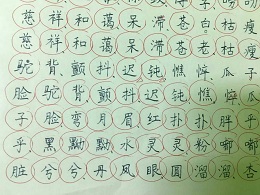 慈祥和蔼呆滞苍白枯瘦
慈祥和蔼呆滞苍老枯瘦
驼背、颤抖、迟钝、憔悴、瓜子
脸、驼背、颤抖、迟钝、憔悴、瓜
子脸、弯月眉、红扑扑、胖乎
乎、黑黝黝、水灵灵、粉嘟嘟
脏兮兮、丹凤眼、圆溜溜、杏